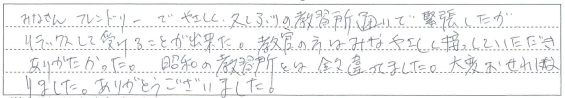 みなさん フレンドリーで やさしく 久しぶりの教習所通いで緊張したが
リラックスして受けることが出来た。教官の方はみなやさしく接していただき
ありがたかった。昭和の教習所とは全く違ってました。大変おせわにな
りました。ありがとうございました。